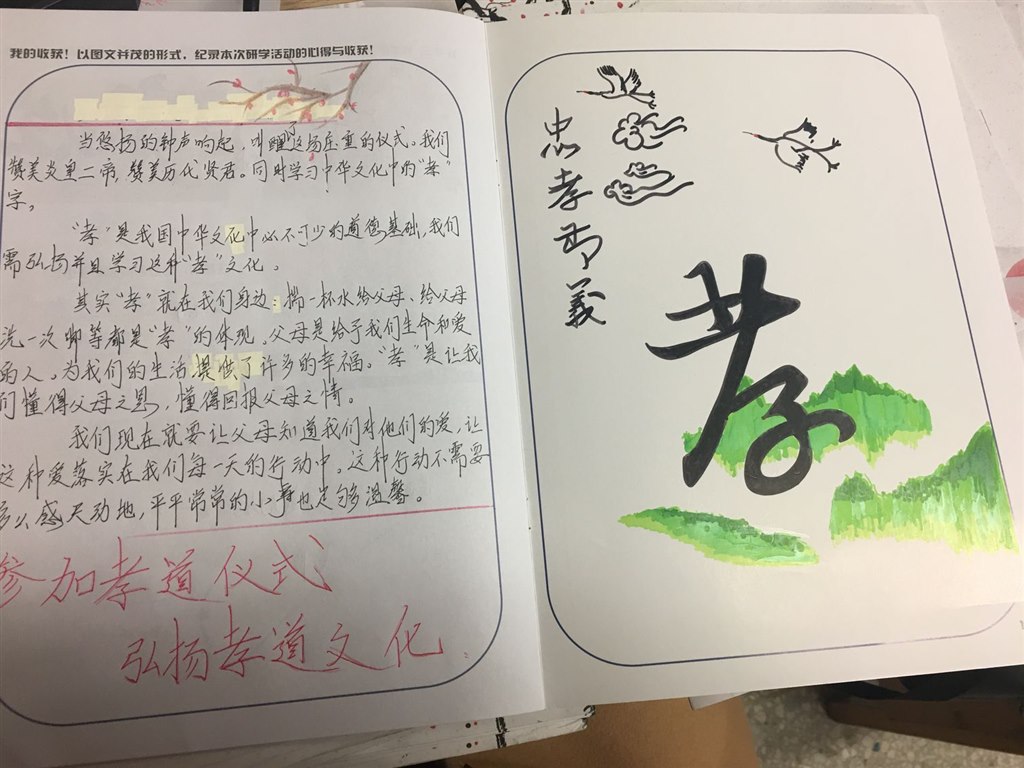 我的收获！以图文并茂的形式，纪录本次研学活动的心得与收获！
当悠扬的钟声响起，叫醒这场庄重的仪式。我们
赞美炎皇二帝，赞美历代贤君。同时学习中华文化中的“孝”
字。
“孝”是我国中华文化中必不可少的道德基础，我们
需弘扬并且学习这种“孝”文化。
其实“孝”就在我们身边：端一杯水给父母、给父母
洗一次脚等都是“孝”的体现。父母是给予我们生命和爱
的人。为我们的生活提供了许多的幸福。“孝”是让我
们懂得父母之恩，懂得回报父母之情。
我们现在就要让父母知道我们对他们的爱，让
这种爱落实在我们每一天的行动中。这种行动不需要
多么感天动地，平平常常的小事也足够温馨。
参加孝道仪式
弘扬孝道文化
忠孝節義
孝